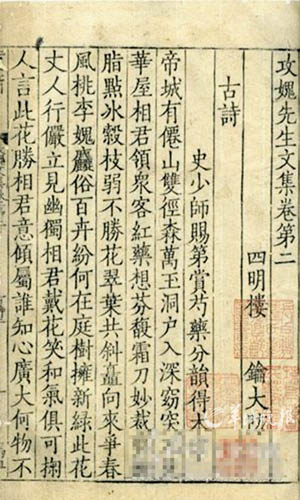 攻媿先生文集卷第二
四明樓　鑰大防
古詩
史少師賜第賞芍藥分韻得大
帝城有僊山雙徑森萬王洞户入深窈突
華屋相君領衆客紅藥想芬馥霜刀妙裁
脂點冰縠枝弱不勝花翠葉共斜矗向來爭春
風桃李媿麤俗百卉紛何在庭樹擁新緑此花
丈人行儼立見幽獨相君戴花笑和氣俱可掬
人言此花勝相君意傾屬誰知心廣大何物不